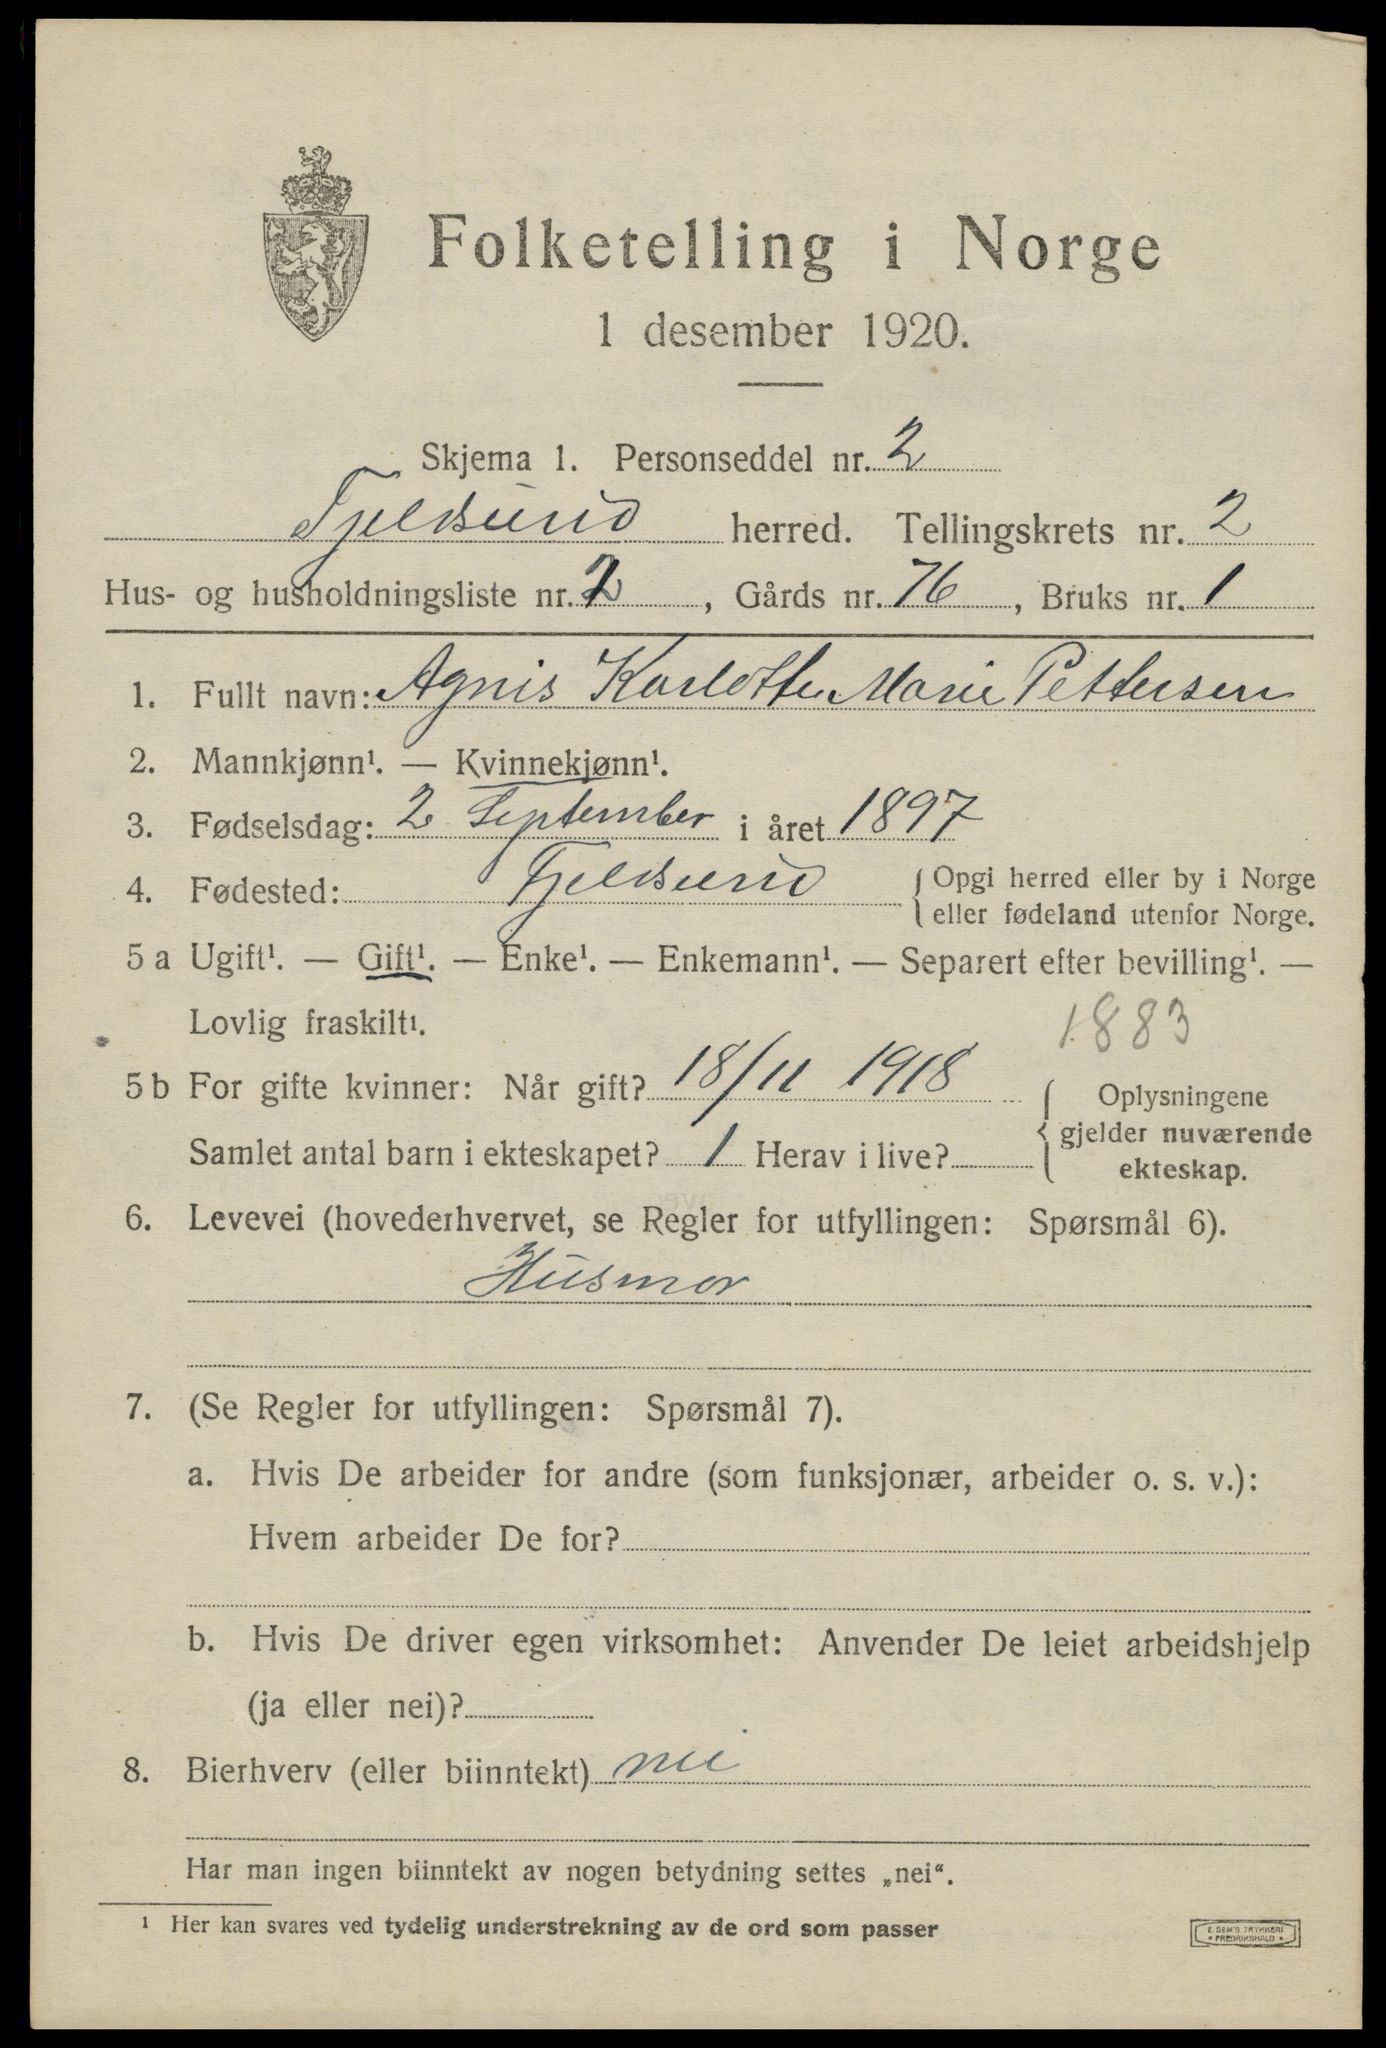 Folketelling i Norge
1 desember 1920.
Skjema 1. Personseddel nr. 2
Fjeldsund herred. Tellingskrets nr. 2
Hus- og husholdningsliste nr. 2, Gårds nr. 76, Bruks nr. 1
1. Fullt navn: Agnis Karlotte Marie Pettersen
2. Mannkjønn¹. — Kvinnekjønn¹.
3. Fødselsdag: 2 September i året 1897
4. Fødested: Fjeldsund { Opgi herred eller by i Norge
eller fødeland utenfor Norge.
5 a Ugift¹. — Gift¹. — Enke¹. — Enkemann¹. — Separert efter bevilling¹. —
Lovlig fraskilt¹.
1883
5 b For gifte kvinner: Når gift? 18/11 1918 { Oplysningene
gjelder nuværende
Samlet antal barn i ekteskapet? 1 Herav i live?
ekteskap.
6. Levevei (hovederhvervet, se Regler for utfyllingen: Spørsmål 6).
Husmor
7. (Se Regler for utfyllingen: Spørsmål 7).
a. Hvis De arbeider for andre (som funksjonær, arbeider o. s. v.):
Hvem arbeider De for?
b. Hvis De driver egen virksomhet: Anvender De leiet arbeidshjelp
(ja eller nei)?
8. Bierhverv (eller biinntekt) nei
Har man ingen biinntekt av nogen betydning settes „nei“.
¹ Her kan svares ved tydelig understrekning av de ord som passer
E. SEM'S TRYKKERI
* FREDRIKSHALD *